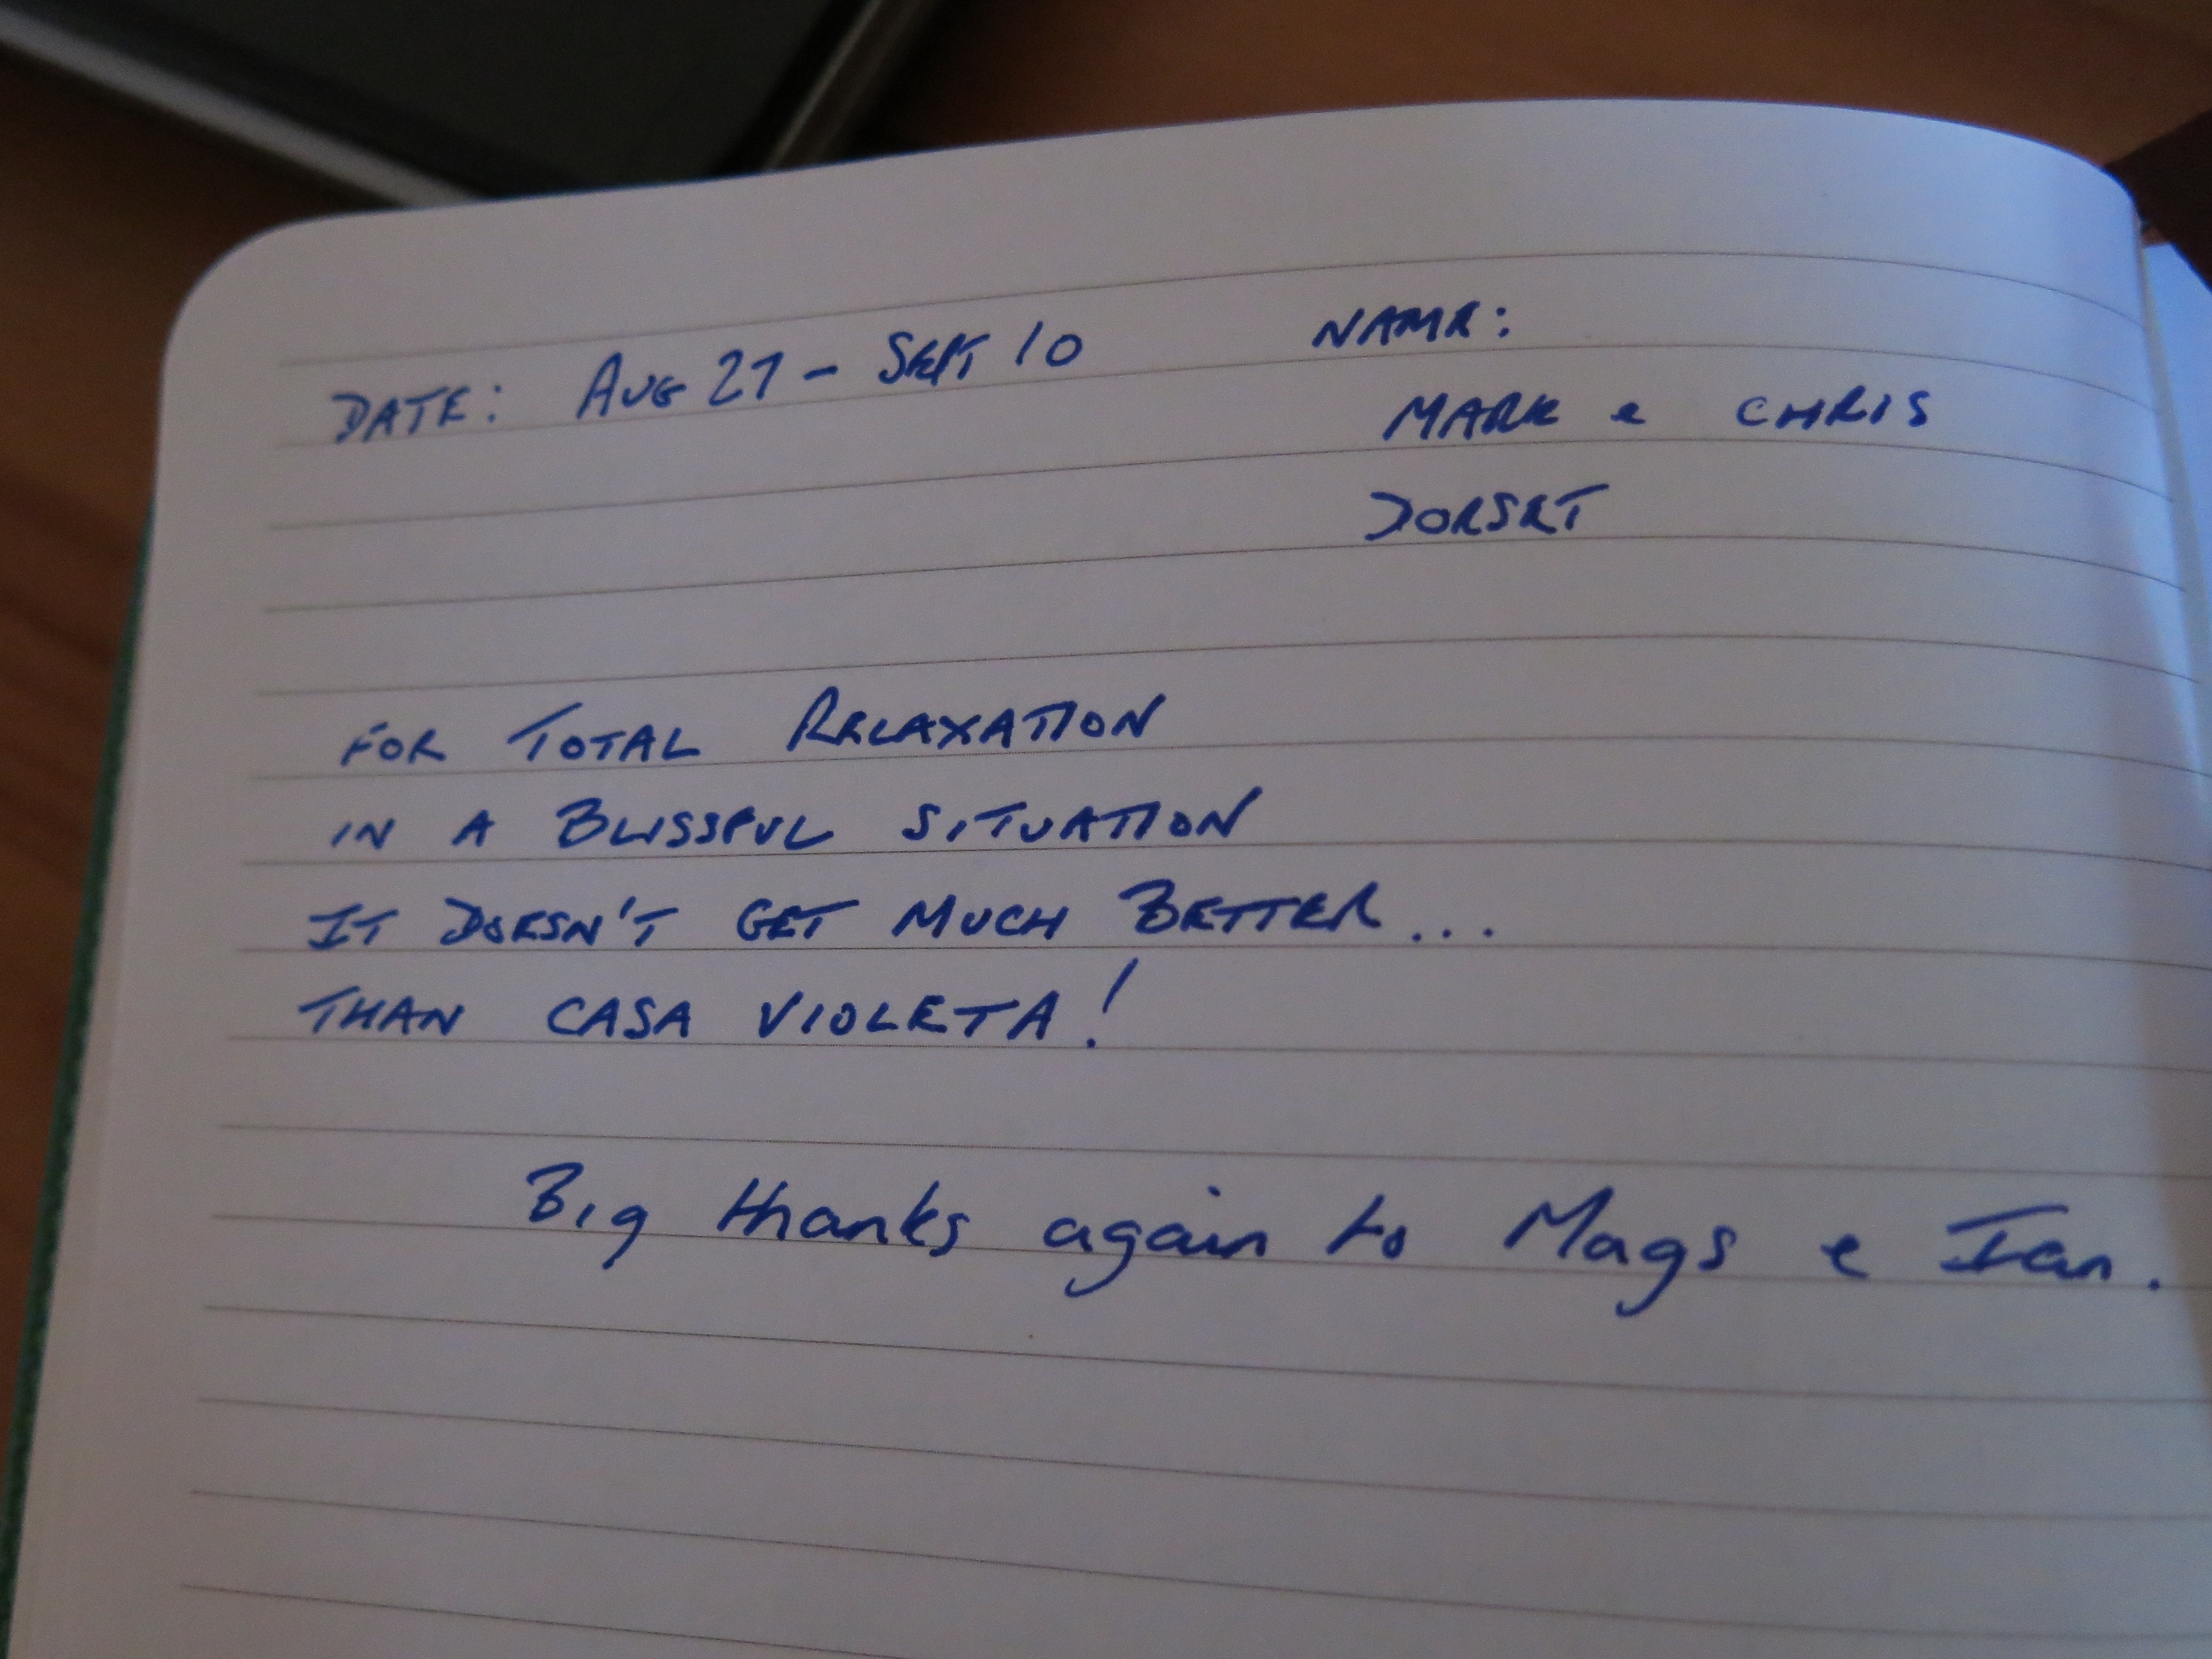 DATE: AUG 27 - SEPT 10
NAME:
MARK & CHRIS
DORSET
FOR TOTAL RELAXATION
IN A BLISSFUL SITUATION
IT DOESN'T GET MUCH BETTER...
THAN CASA VIOLETA!
Big thanks again to Mags & Ian.